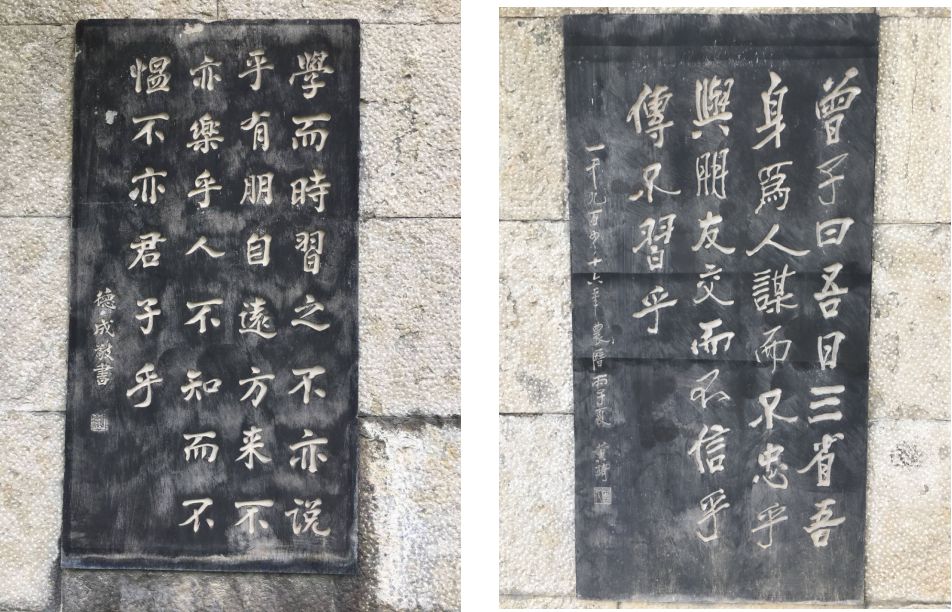 學而時習之不亦说
乎有朋自遠方来不
亦樂乎人不知而不
愠不亦君子乎
德成敬書
曾子曰吾日三省吾
身爲人謀而不忠乎
與朋友交而不信乎
傳不習乎
一千九百九十六年農曆丙子夏